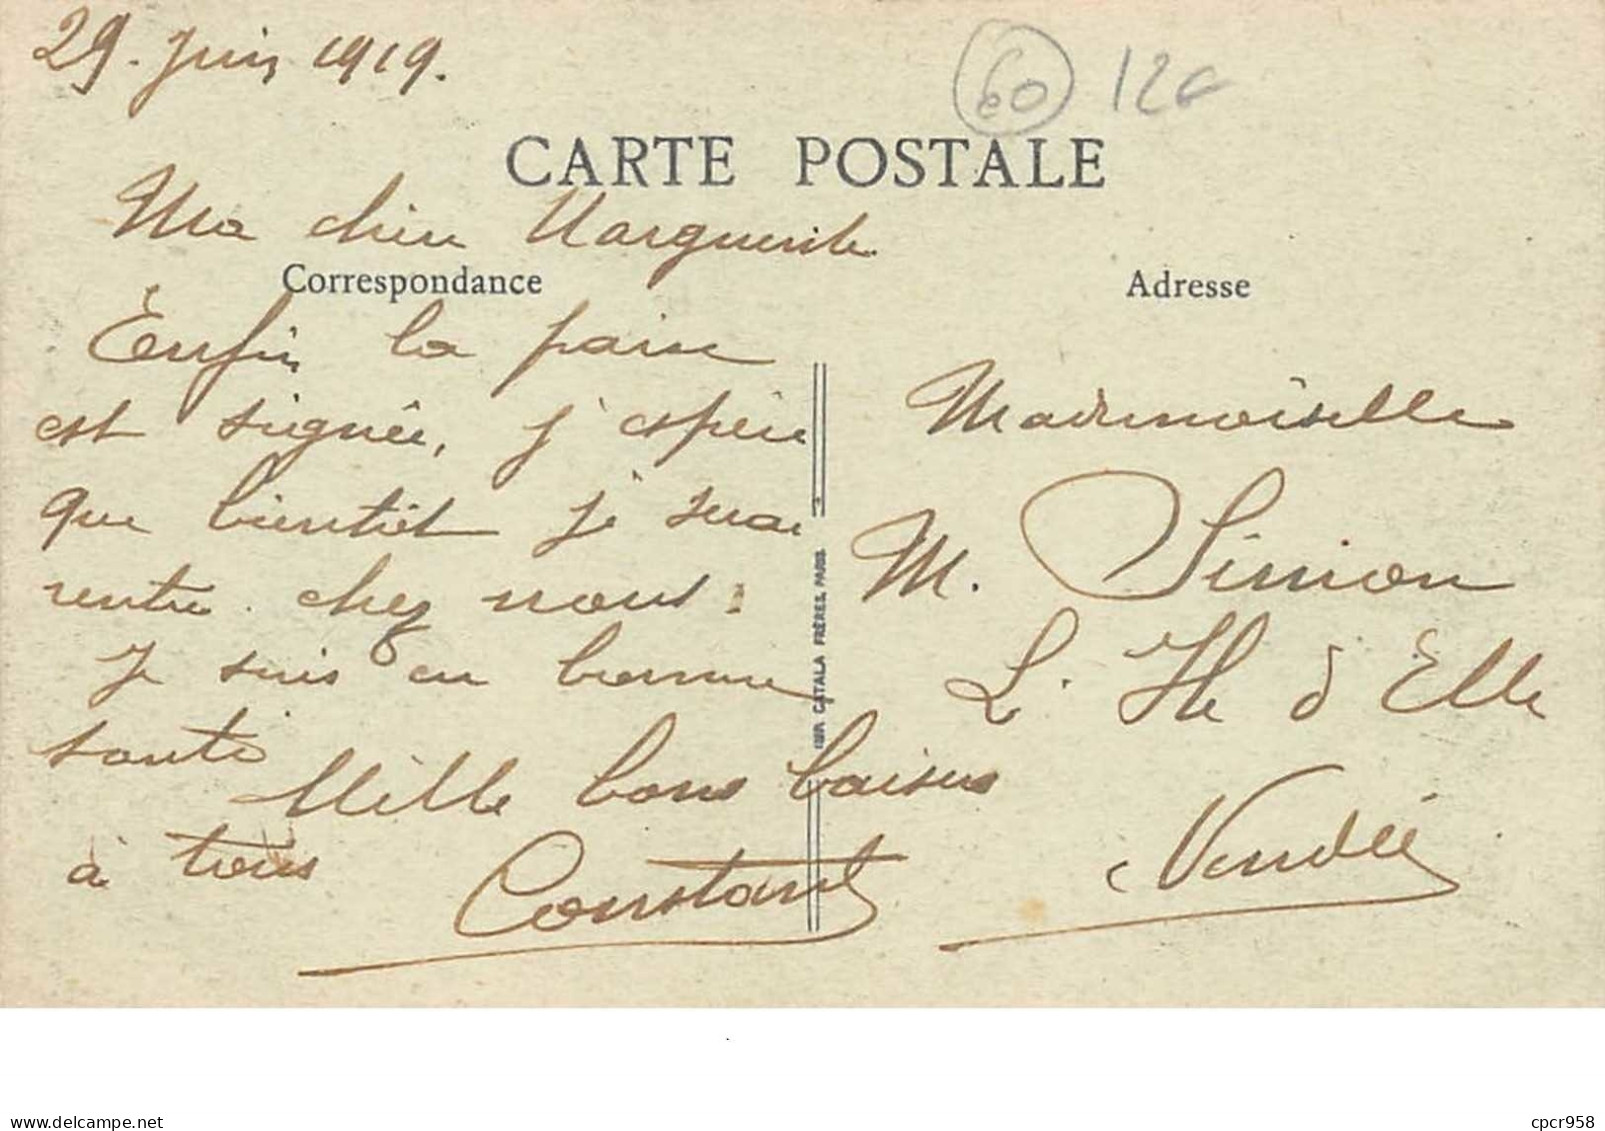 29. Juin 1919.
60 12€
CARTE POSTALE
Ma chère Marguerite
Correspondance
Enfin la paix
est signée, j'espère
que bientôt je serai
rentré chez nous.
Je suis en bonne
santé
Mille bons baisers
à tous
Constant
IMP. CATALA FRÈRES, PARIS
Adresse
Mademoiselle
M. Simon
L'Ile d'Elle
Vendée
delcampe.net
cpcr958